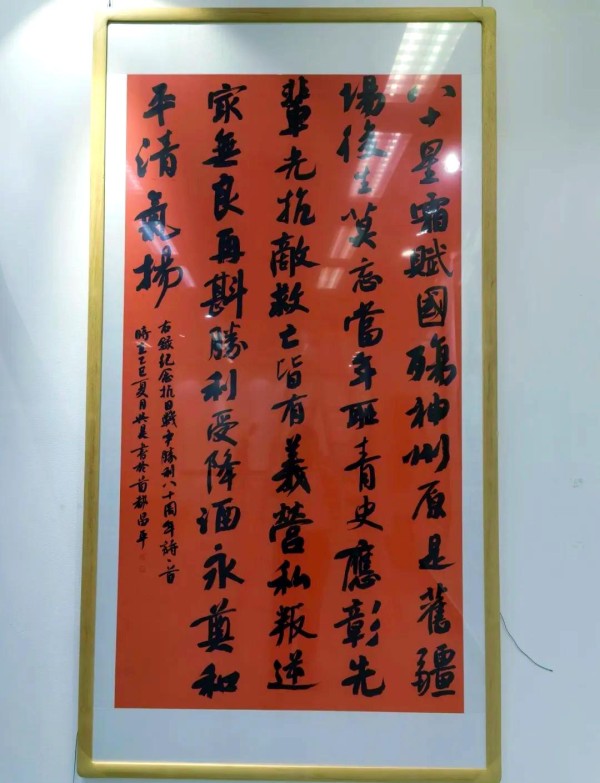 八十星霜賦國殤神州原是舊疆
場後生莫忘當年耻青史應彰先
輩光抗敵救亡皆有義營私叛逆
冣無良再斟勝利受降酒永奠和
平清氣揚
右錄紀念抗日戰争勝利八十周年詩一首
時在乙巳夏月書於首都昌平